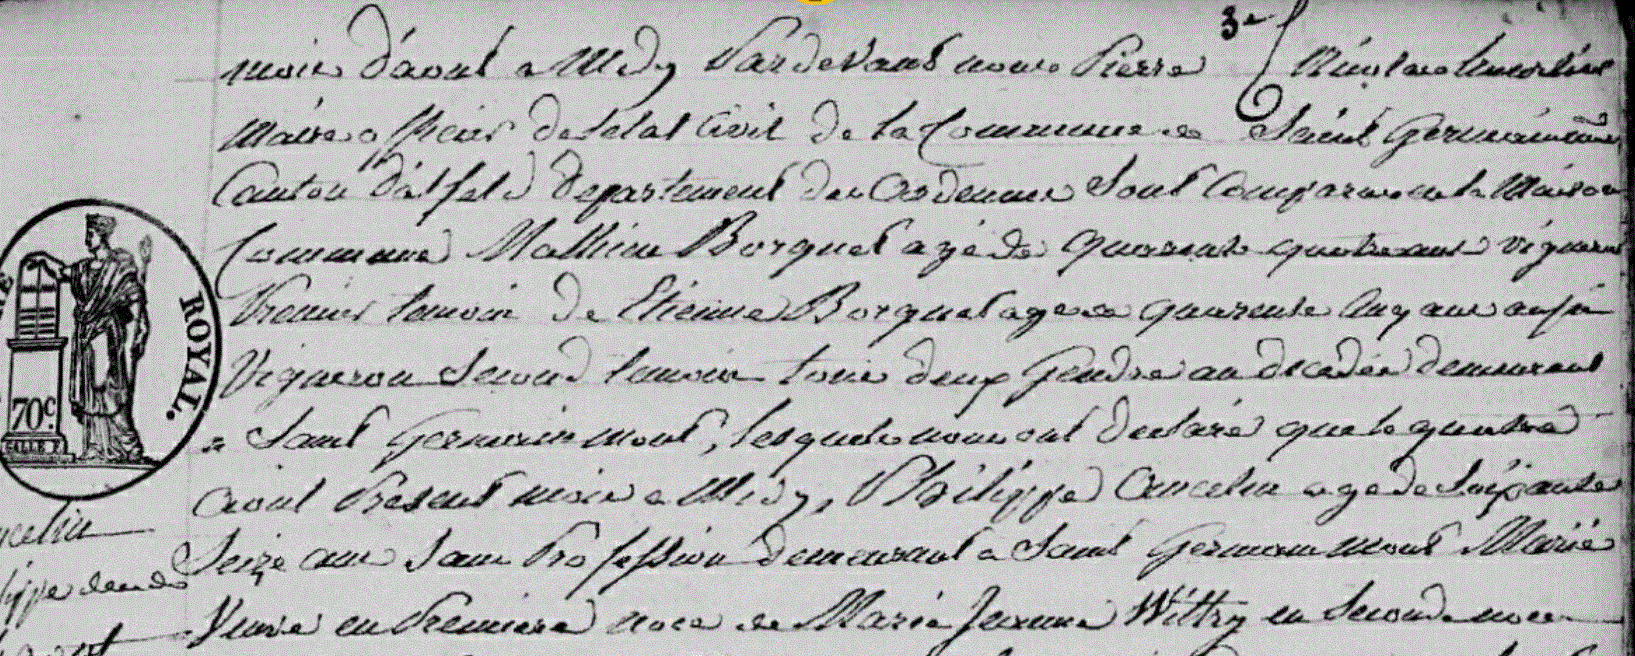 3e
mois d'aout a Midy Pardevant nous Pierre Nicolas
Maire officier de letat Civil de la Commune de Saint Germainmont
Canton d'asfeld departement des Ardennes Sont Comparus en la Maison
Commune Mathieu Borquet agé de quarente quatre ans vigneron
Premier temoin de Etienne Borquet age de quarente Cinq ans aussi
Vigneron Second temoin tous deux Gendre au decedée demeurant
a Saint Germain mont, lesquels nous ont declaré que le quatre
aout Present mois a Midy, Philippe Ancelin age de Soixante
Seize ans Sans Profession demeurant a Saint Germain mont Marié
Veuve en Premiere noce de Marie Jeanne Wittry en Seconde noce
ROYAL.
70c